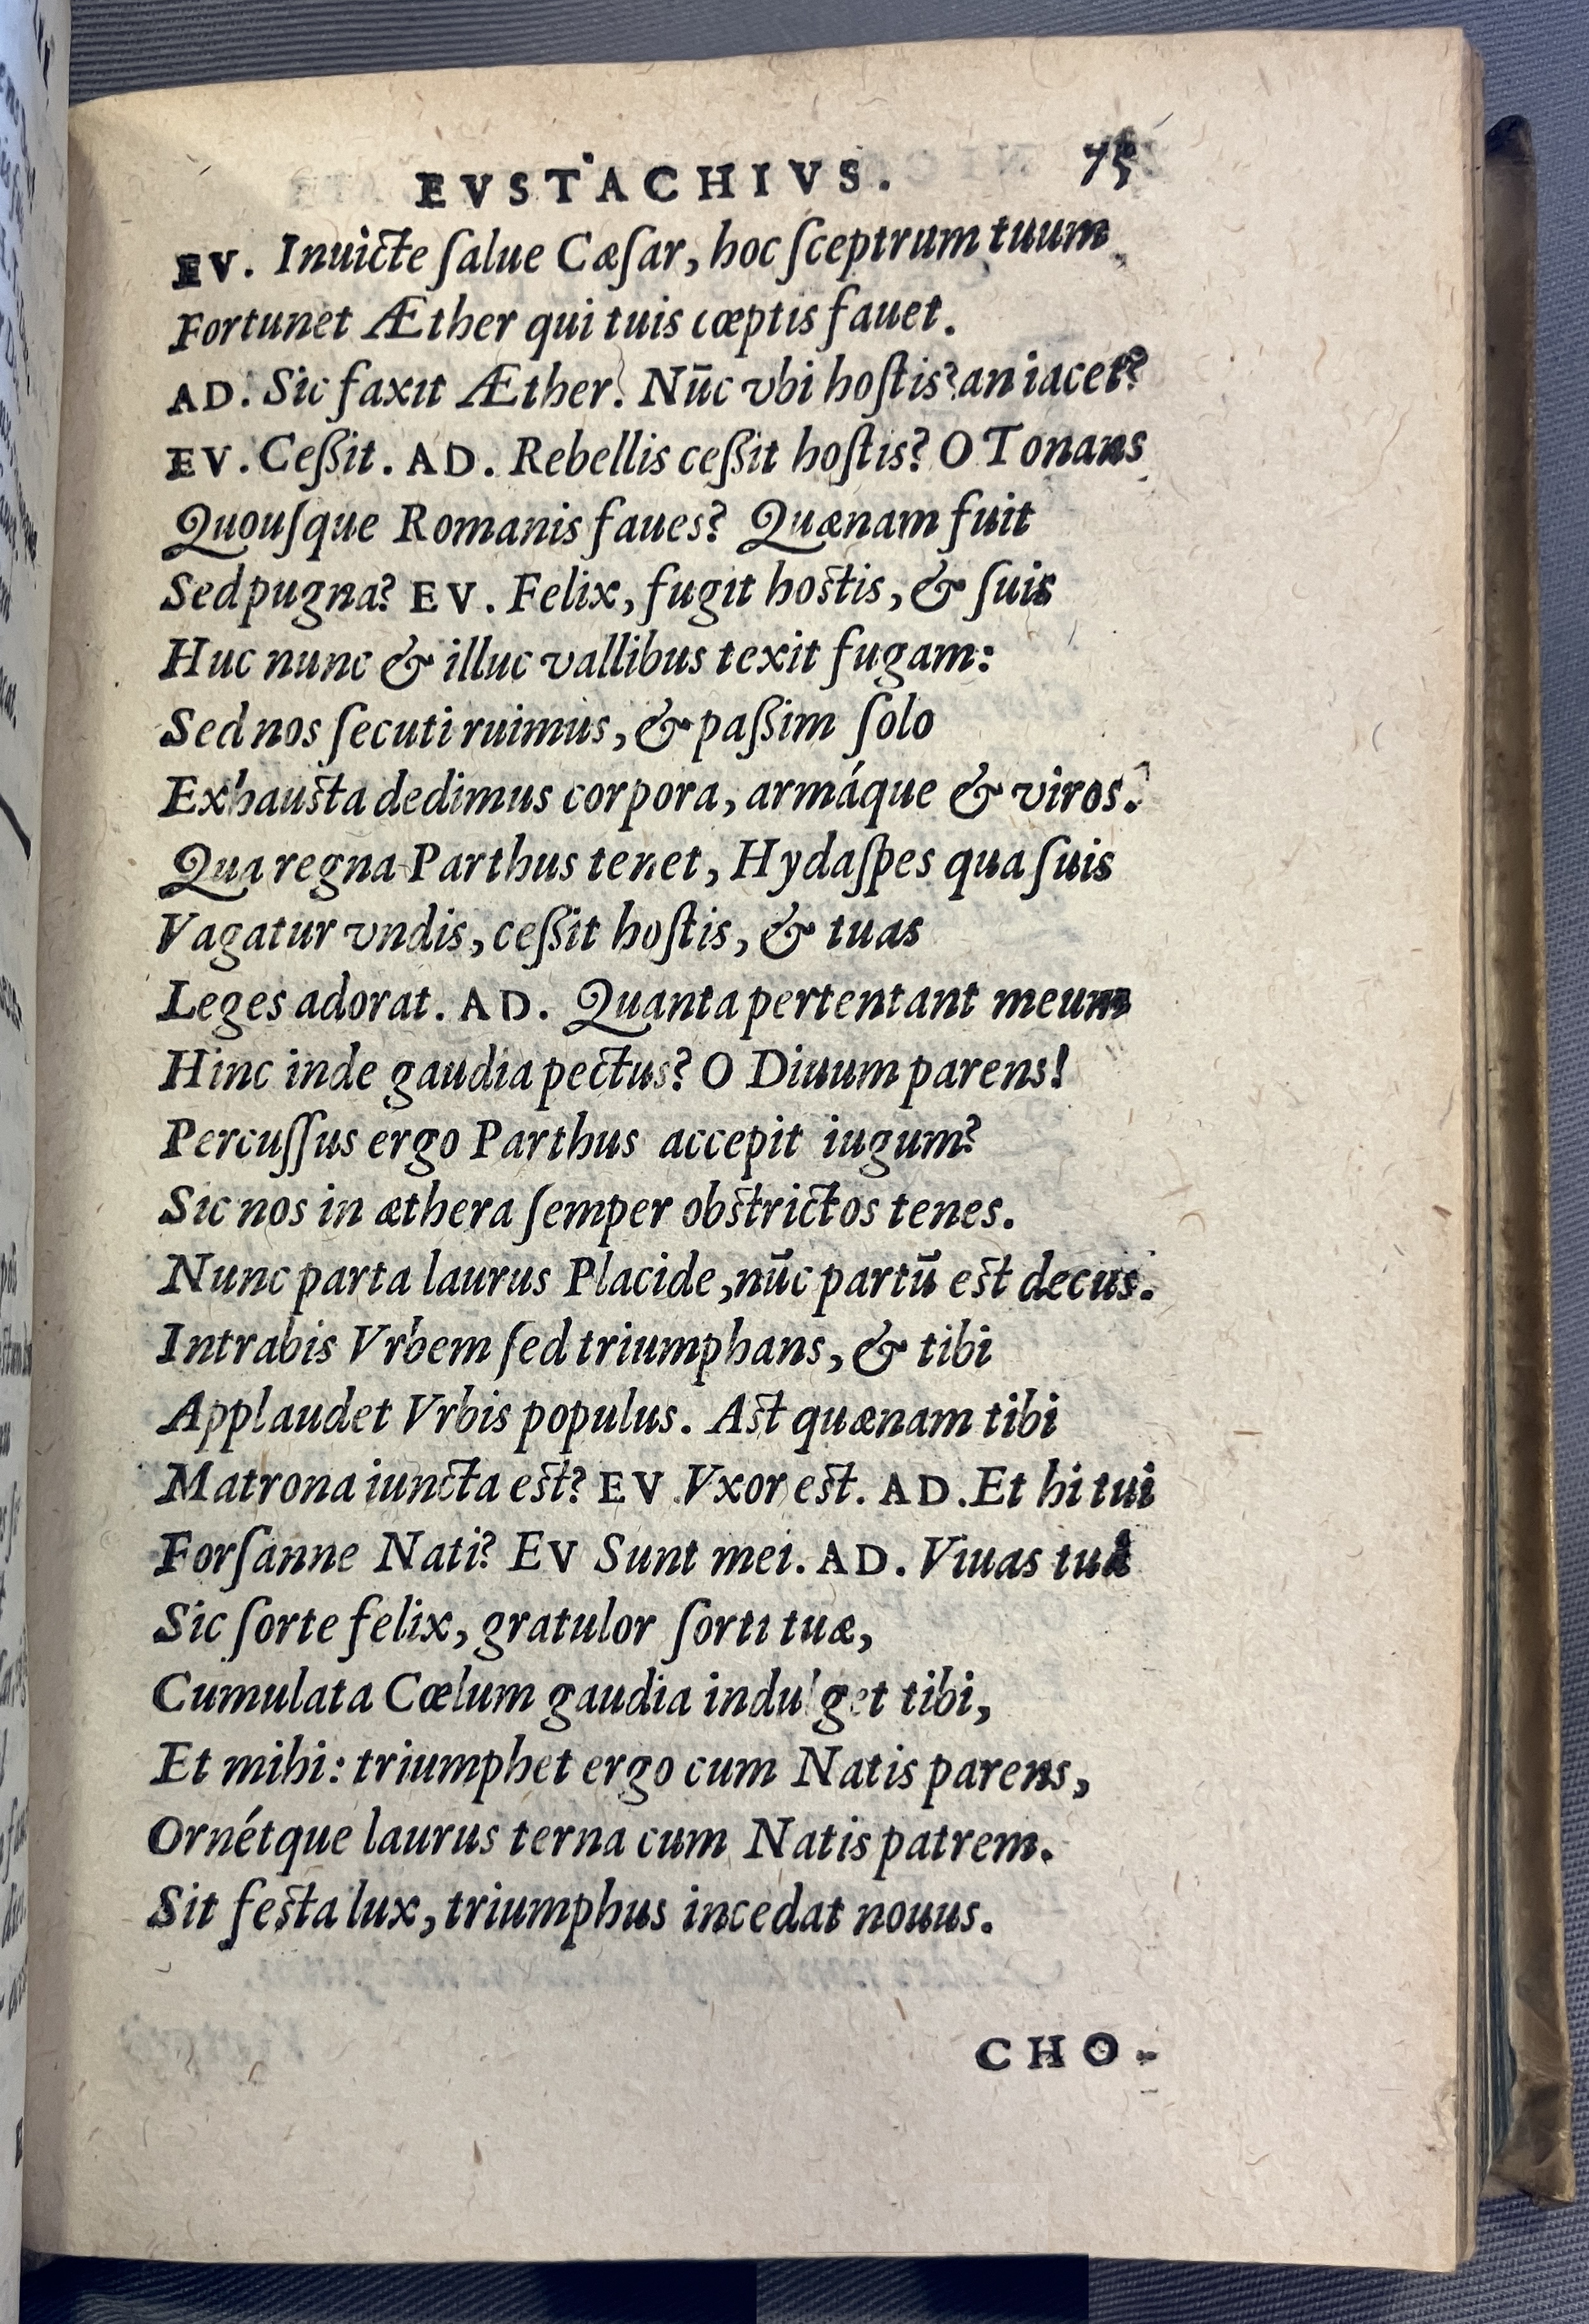 EVSTACHIVS. 75
EV. Inuicte ſalue Cæſar, hoc ſceptrum tuum
Fortunet Æther qui tuis cœptis fauet.
AD. Sic faxit Æther. Nūc vbi hoſtis? an iacet?
EV. Ceſſit. AD. Rebellis ceſſit hoſtis? O Tonans
Quouſque Romanis faues? Quænam fuit
Sed pugna? EV. Felix, fugit hoſtis, & ſuis
Huc nunc & illuc vallibus texit fugam:
Sed nos ſecuti ruimus, & paſſim ſolo
Exhauſta dedimus corpora, armáque & viros.
Qua regna Parthus tenet, Hydaſpes qua ſuis
Vagatur vndis, ceſſit hoſtis, & tuas
Leges adorat. AD. Quanta pertentant meum
Hinc inde gaudia pectus? O Diuum parens!
Percuſſus ergo Parthus accepit iugum?
Sic nos in æthera ſemper obſtrictos tenes.
Nunc parta laurus Placide, nūc partū eſt decus.
Intrabis Vrbem ſed triumphans, & tibi
Applaudet Vrbis populus. Aſt quænam tibi
Matrona iuncta eſt? EV. Vxor eſt. AD. Et hi tui
Forſanne Nati? EV Sunt mei. AD. Viuas tuâ
Sic ſorte felix, gratulor ſorti tuæ,
Cumulata Cœlum gaudia indulget tibi,
Et mihi: triumphet ergo cum Natis parens,
Ornétque laurus terna cum Natis patrem.
Sit feſta lux, triumphus incedat nouus.
CHO-